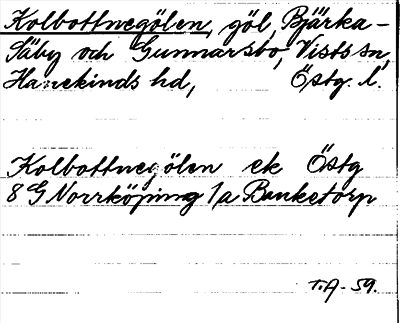 Kolbottnegölen, göl, Bjärka-
Säby och Gunnarsbo, Vists sn,
Hanekinds hd, Östg. l.
Kolbottnegölen ek Östg
8 G Norrköping 1a Banketorp
T.A-59.